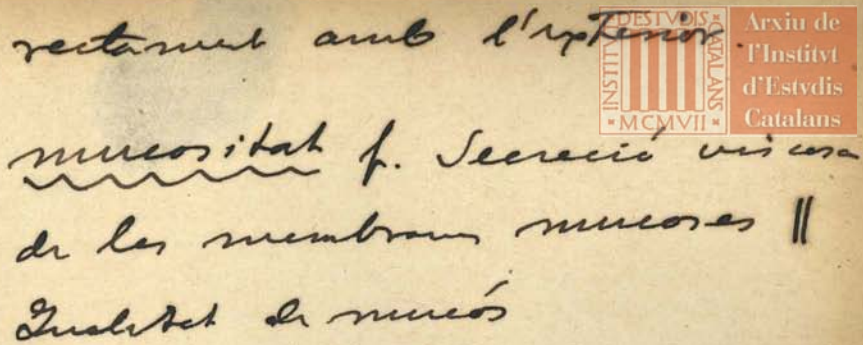 rectament amb l'exterior.
INSTITVT D'ESTVDIS CATALANS
MCMVII
Arxiu de
l'Institvt
d'Estvdis
Catalans
mucositat f. Secreció viscosa
de les membranes mucoses ||
Qualitat de mucós